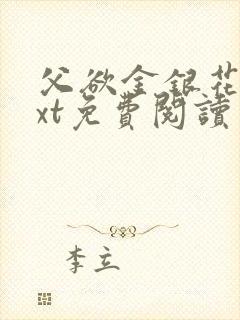 父欲金銀花
xt免費閱讀
李立